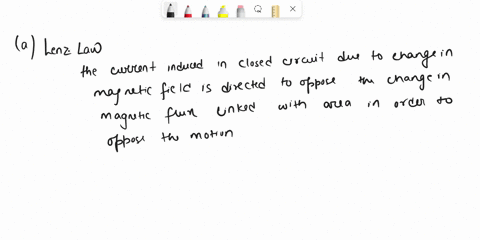 (a) Lenz Law
the current induced in closed circuit due to change in
magnetic field is directed to oppose the change in
magnetic flux linked with area in order to
oppose the motion